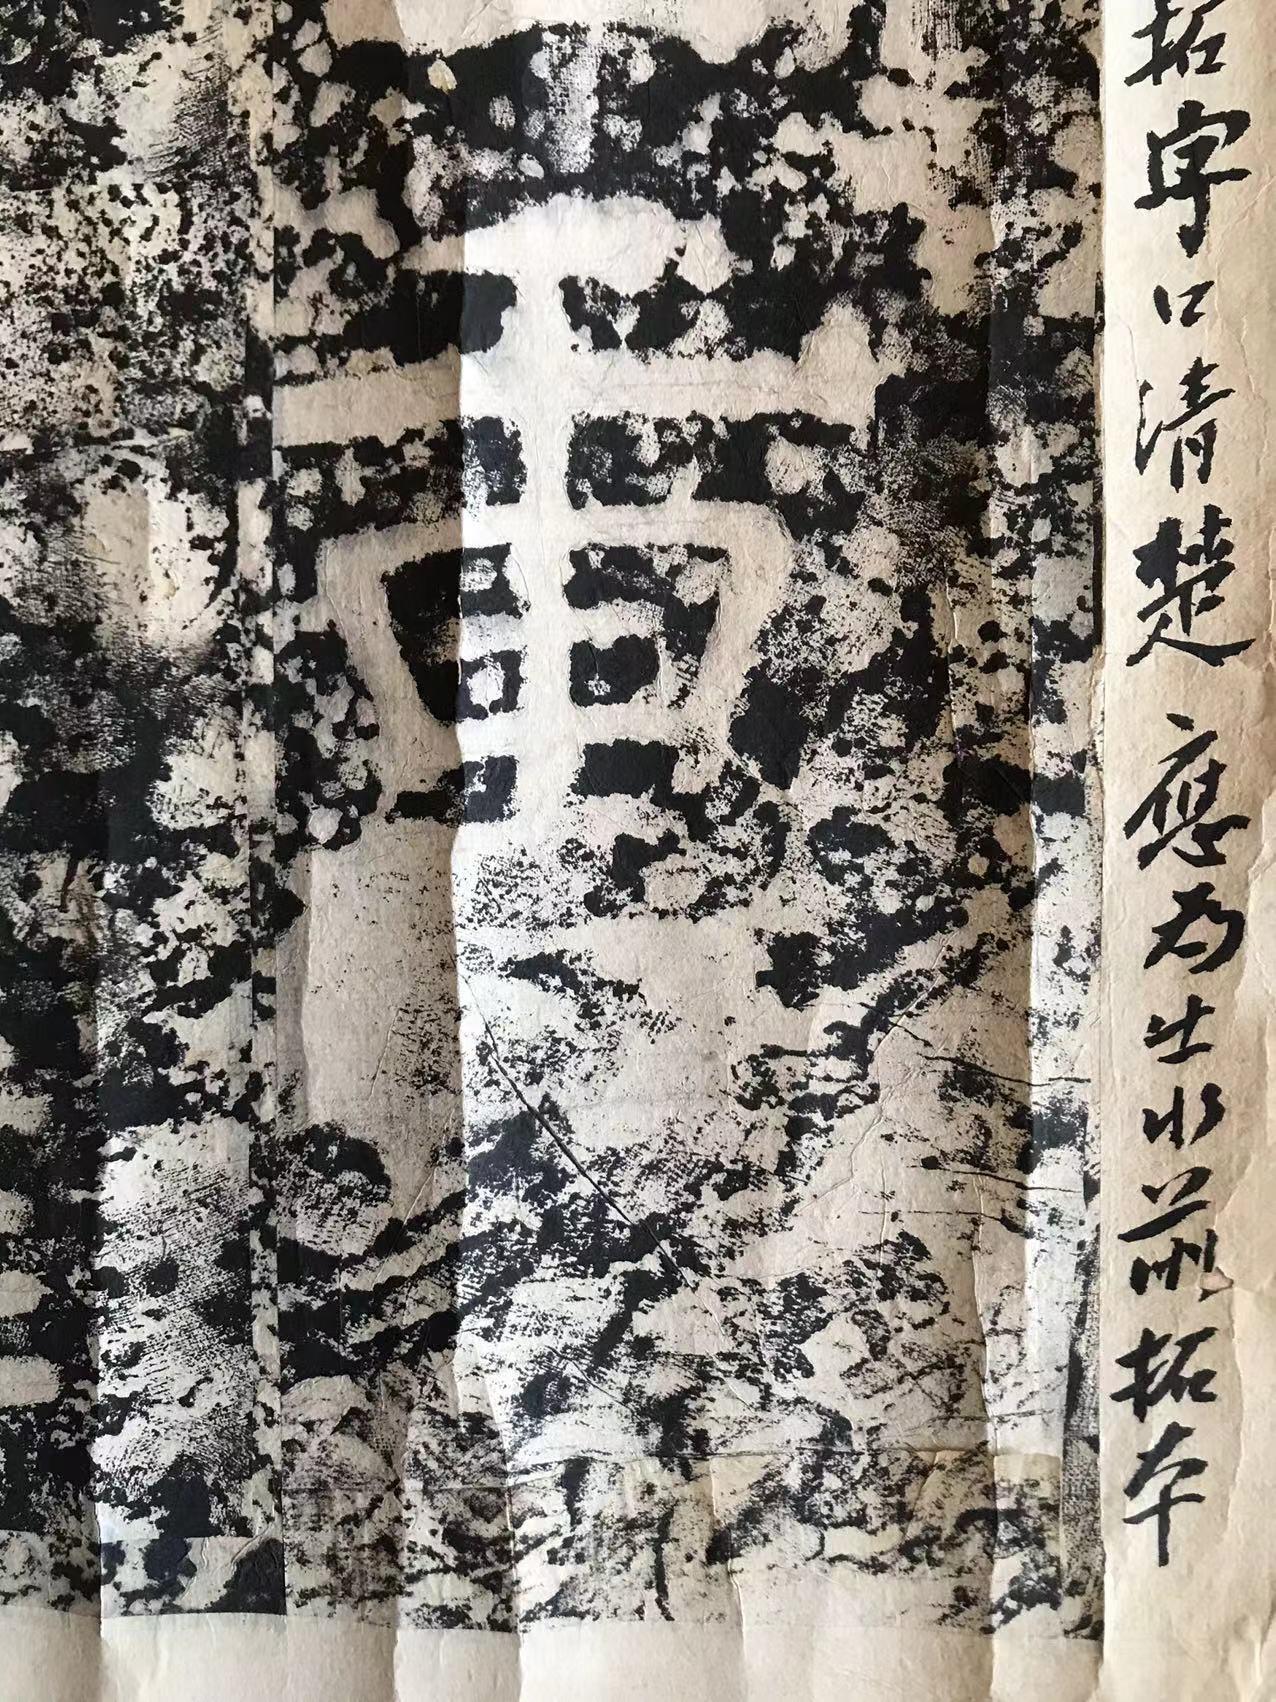 拓字口清楚應為出水前拓本
重